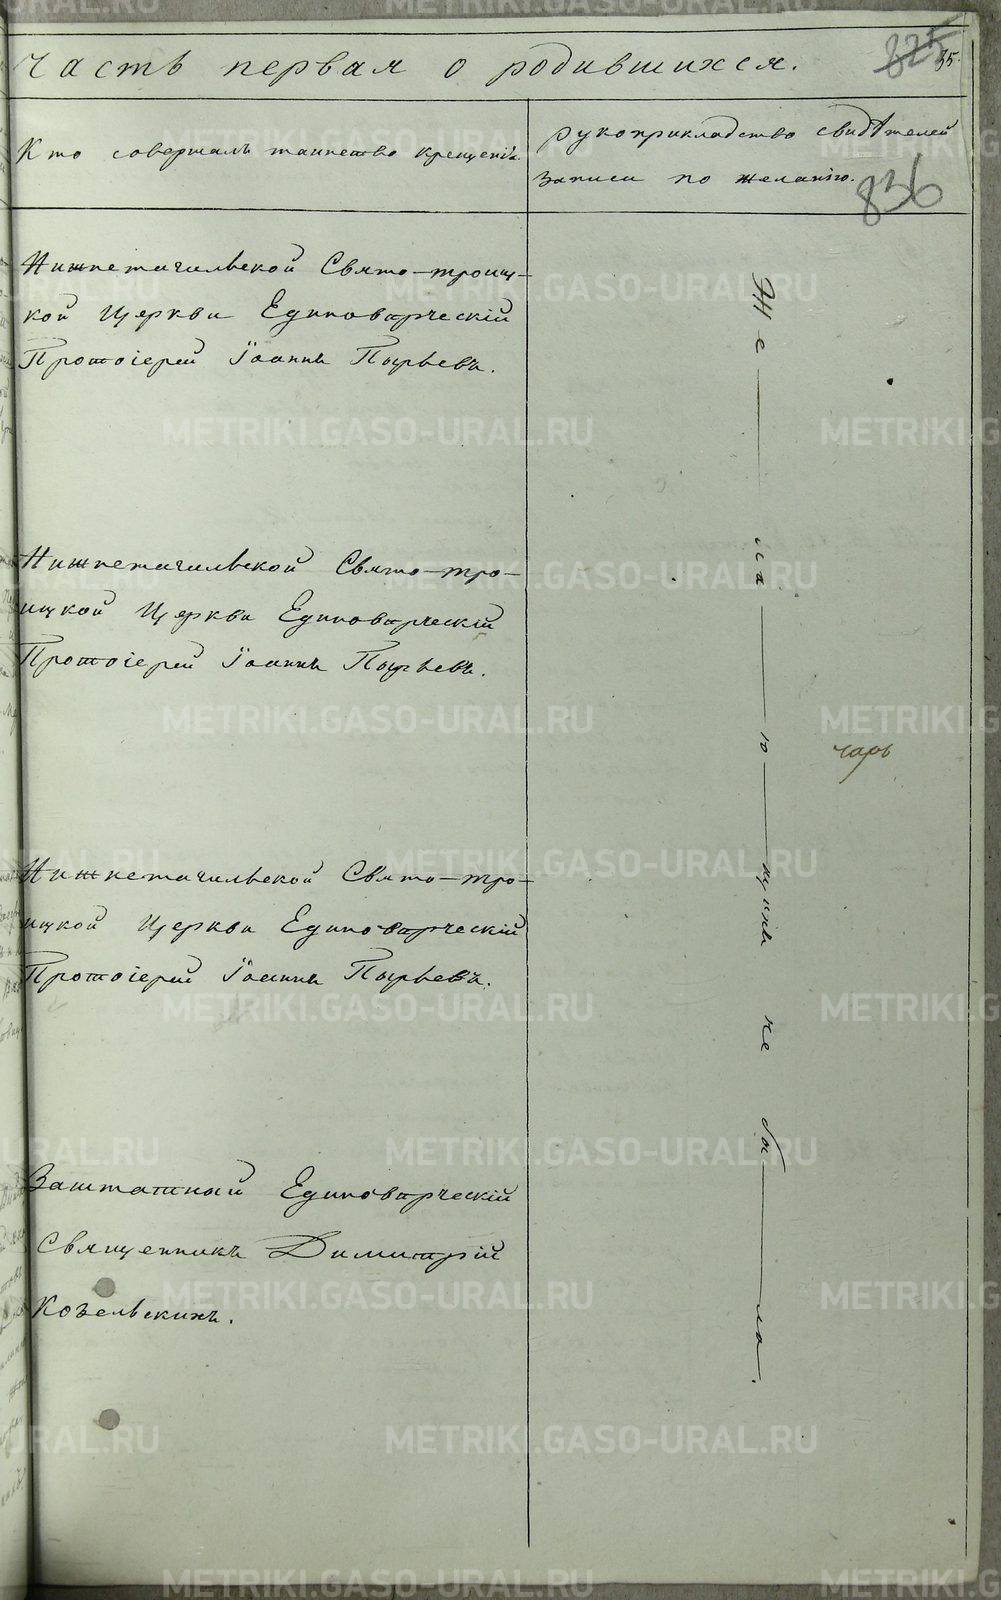 Часть первая о родившихся.
825
35.
Кто совершалъ таинство крещенія.
Рукоприкладство свидѣтелей
записи по желанію.
836
Нижнетагильской Свято-троиц-
кой Церкви Единовѣрческій
Протоіерей Іоаннъ Пырьевъ.
Нижнетагильской Свято-тро-
ицкой Церкви Единовѣрческій
Протоіерей Іоаннъ Пырьевъ.
Нижнетагильской Свято-тро-
ицкой Церкви Единовѣрческій
Протоіерей Іоаннъ Пырьевъ.
Заштатный Единовѣрческій
Священникъ Димитрій
Козельскихъ.
Же
не бы
ло.
царь
METRIKI.GASO-URAL.RU